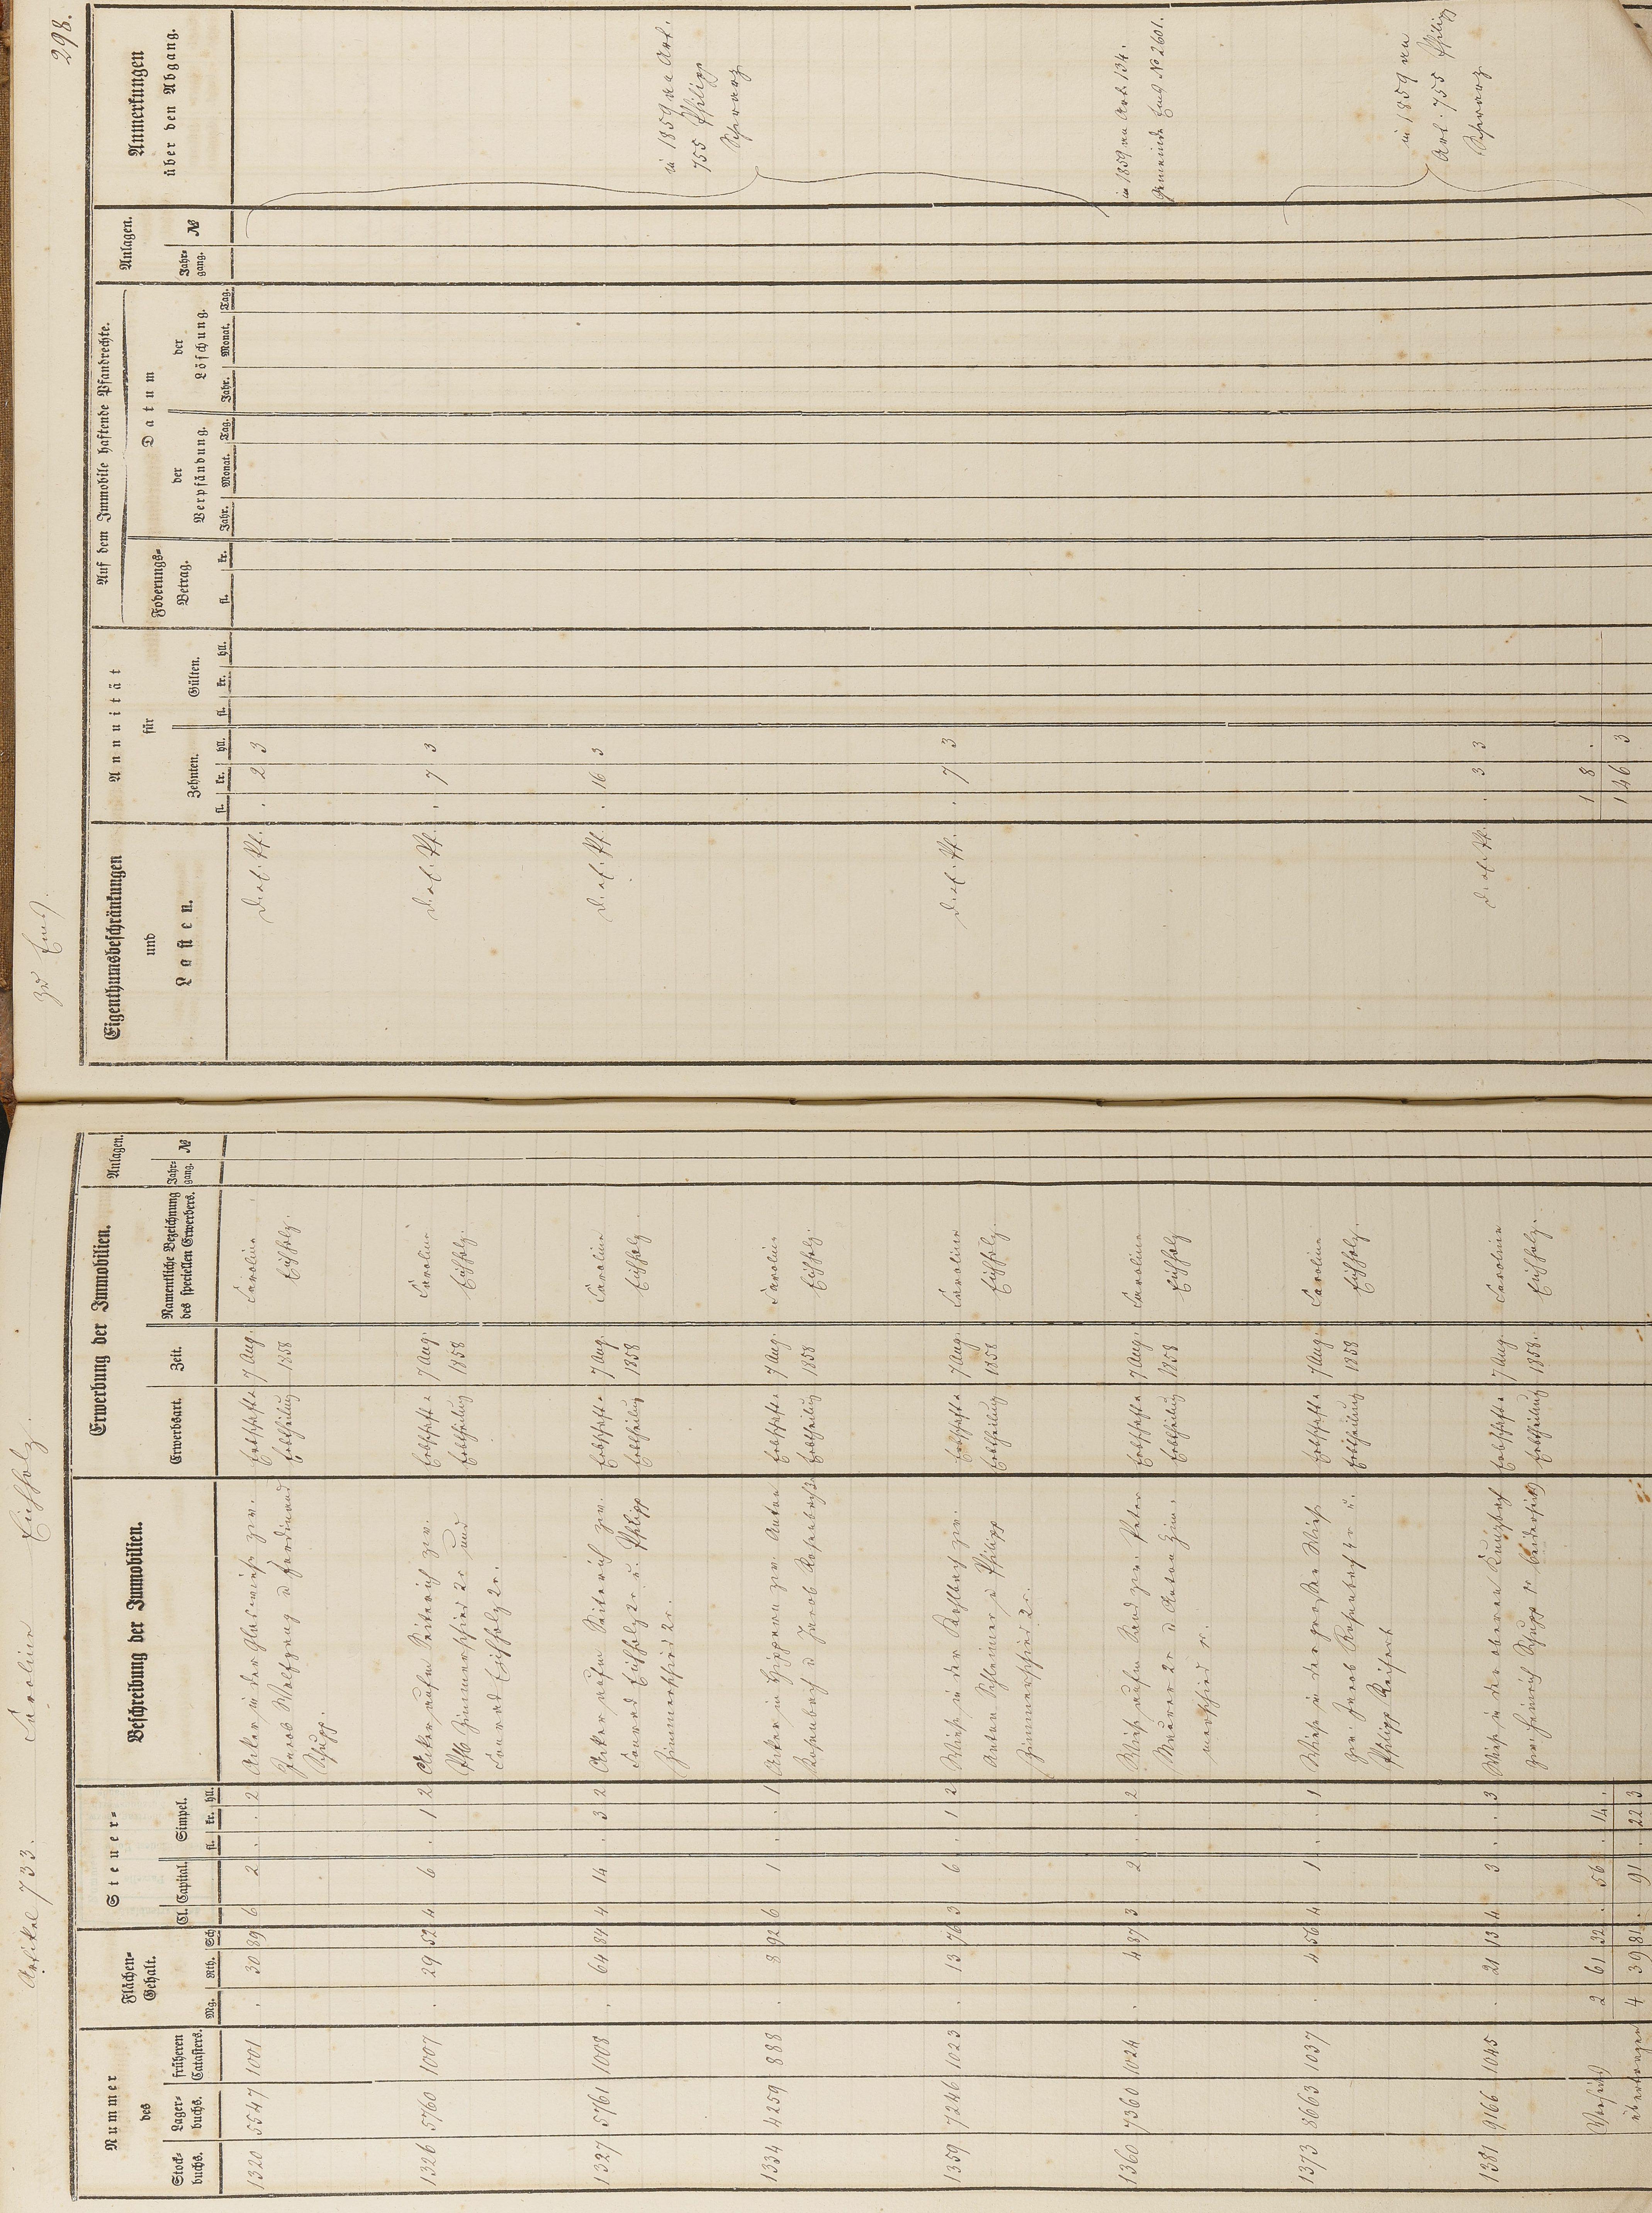 Artikel 733. Caroline Eichholz. zu Ems. 298.
Nummer des
Stock- buchs.
Lager- buchs.
früheren Catasters.
Flächen- Gehalt.
Mg. Rth. Sch
Steuer-
Cl. Capital. Simpel.
fl. kr. hll.
Beschreibung der Immobilien.
Erwerbung der Immobilien.
Erwerbsart. Zeit. Namentliche Bezeichnung des speciellen Erwerbers.
Anlagen.
Jahr- gang. №
Eigenthumsbeschränkungen
und
Lasten.
Annuität
für
Zehnten. Gülten.
fl. kr. hll. fl. kr. hll.
Auf dem Immobile haftende Pfandrechte.
Foderungs- Betrag.
fl. kr.
Datum
der Verpfändung. der Löschung.
Jahr. Monat. Tag. Jahr. Monat. Tag.
Anlagen.
Jahr- gang. №
Anmerkungen
über den Abgang.
1320 5547 1001 . 30 89 6 2 . . 2 Acker in der Glaswiese zw. Erbschafts 7 Aug. Caroline . 2 3
Jacob Wolfgang u Ferdinand Erbtheilung 1858 Eichholz.
Schupp.
1326 5760 1007 . 29 52 4 6 . 1 2 Acker aufm Seiterich zw. Erbschafts 7 Aug. Caroline . 7 3
Zimmerschied 2r und Erbtheilung 1858 Eichholz.
Conrad Eichholz 2r.
1327 5761 1008 . 64 84 4 14 . 3 2 Acker aufm Seiterich zw. Erbschafts 7 Aug. Caroline . 16 3
Conrad Eichholz 2r u. Philipp Erbtheilung 1858 Eichholz.
Zimmerschied 2r.
in 1859 an Art.
755 Philipp
Schwarz
1334 4259 888 . 8 92 6 1 . . 1 Acker in zw. Anton Erbschafts 7 Aug. Caroline
Rosenbach u Jacob Rosenbach Erbtheilung 1858 Eichholz.
1359 7246 1023 . 13 76 3 6 . 1 2 Wiese in der zw. Erbschafts 7 Aug. Caroline . 7 3
Anton Schleimer u Philipp Erbtheilung 1858 Eichholz.
Zimmerschied 2r.
1360 7360 1024 . 4 87 3 2 . . 2 Wiese aufm Sand zw. Peter Erbschafts 7 Aug. Caroline in 1859 an Art. 134.
Maurer 2r u Anton Zim- Erbtheilung 1858 Eichholz Gemeinde Ems № 2601.
merschied 1r.
1373 8663 1037 . 4 56 4 1 . . 1 Wiese in der großen Wiese Erbschafts 7 Aug. Caroline
zw. Jacob Rosenbach 4r u. Erbtheilung 1858 Eichholz.
Philipp Reifert
in 1859 an
Art. 755 Philipp
Schwarz
1381 9166 1045 . 21 13 4 3 . . 3 Wiese in der oberen Erbschafts 7 Aug. Caroline . 3 3
zw. Heinrich Schupp 1r beiderseits Erbtheilung 1858. Eichholz.
2 61 32 . 56 . 14 . 1 8 .
übertragen 4 39 81 . 91 . 22 3 1 46 3